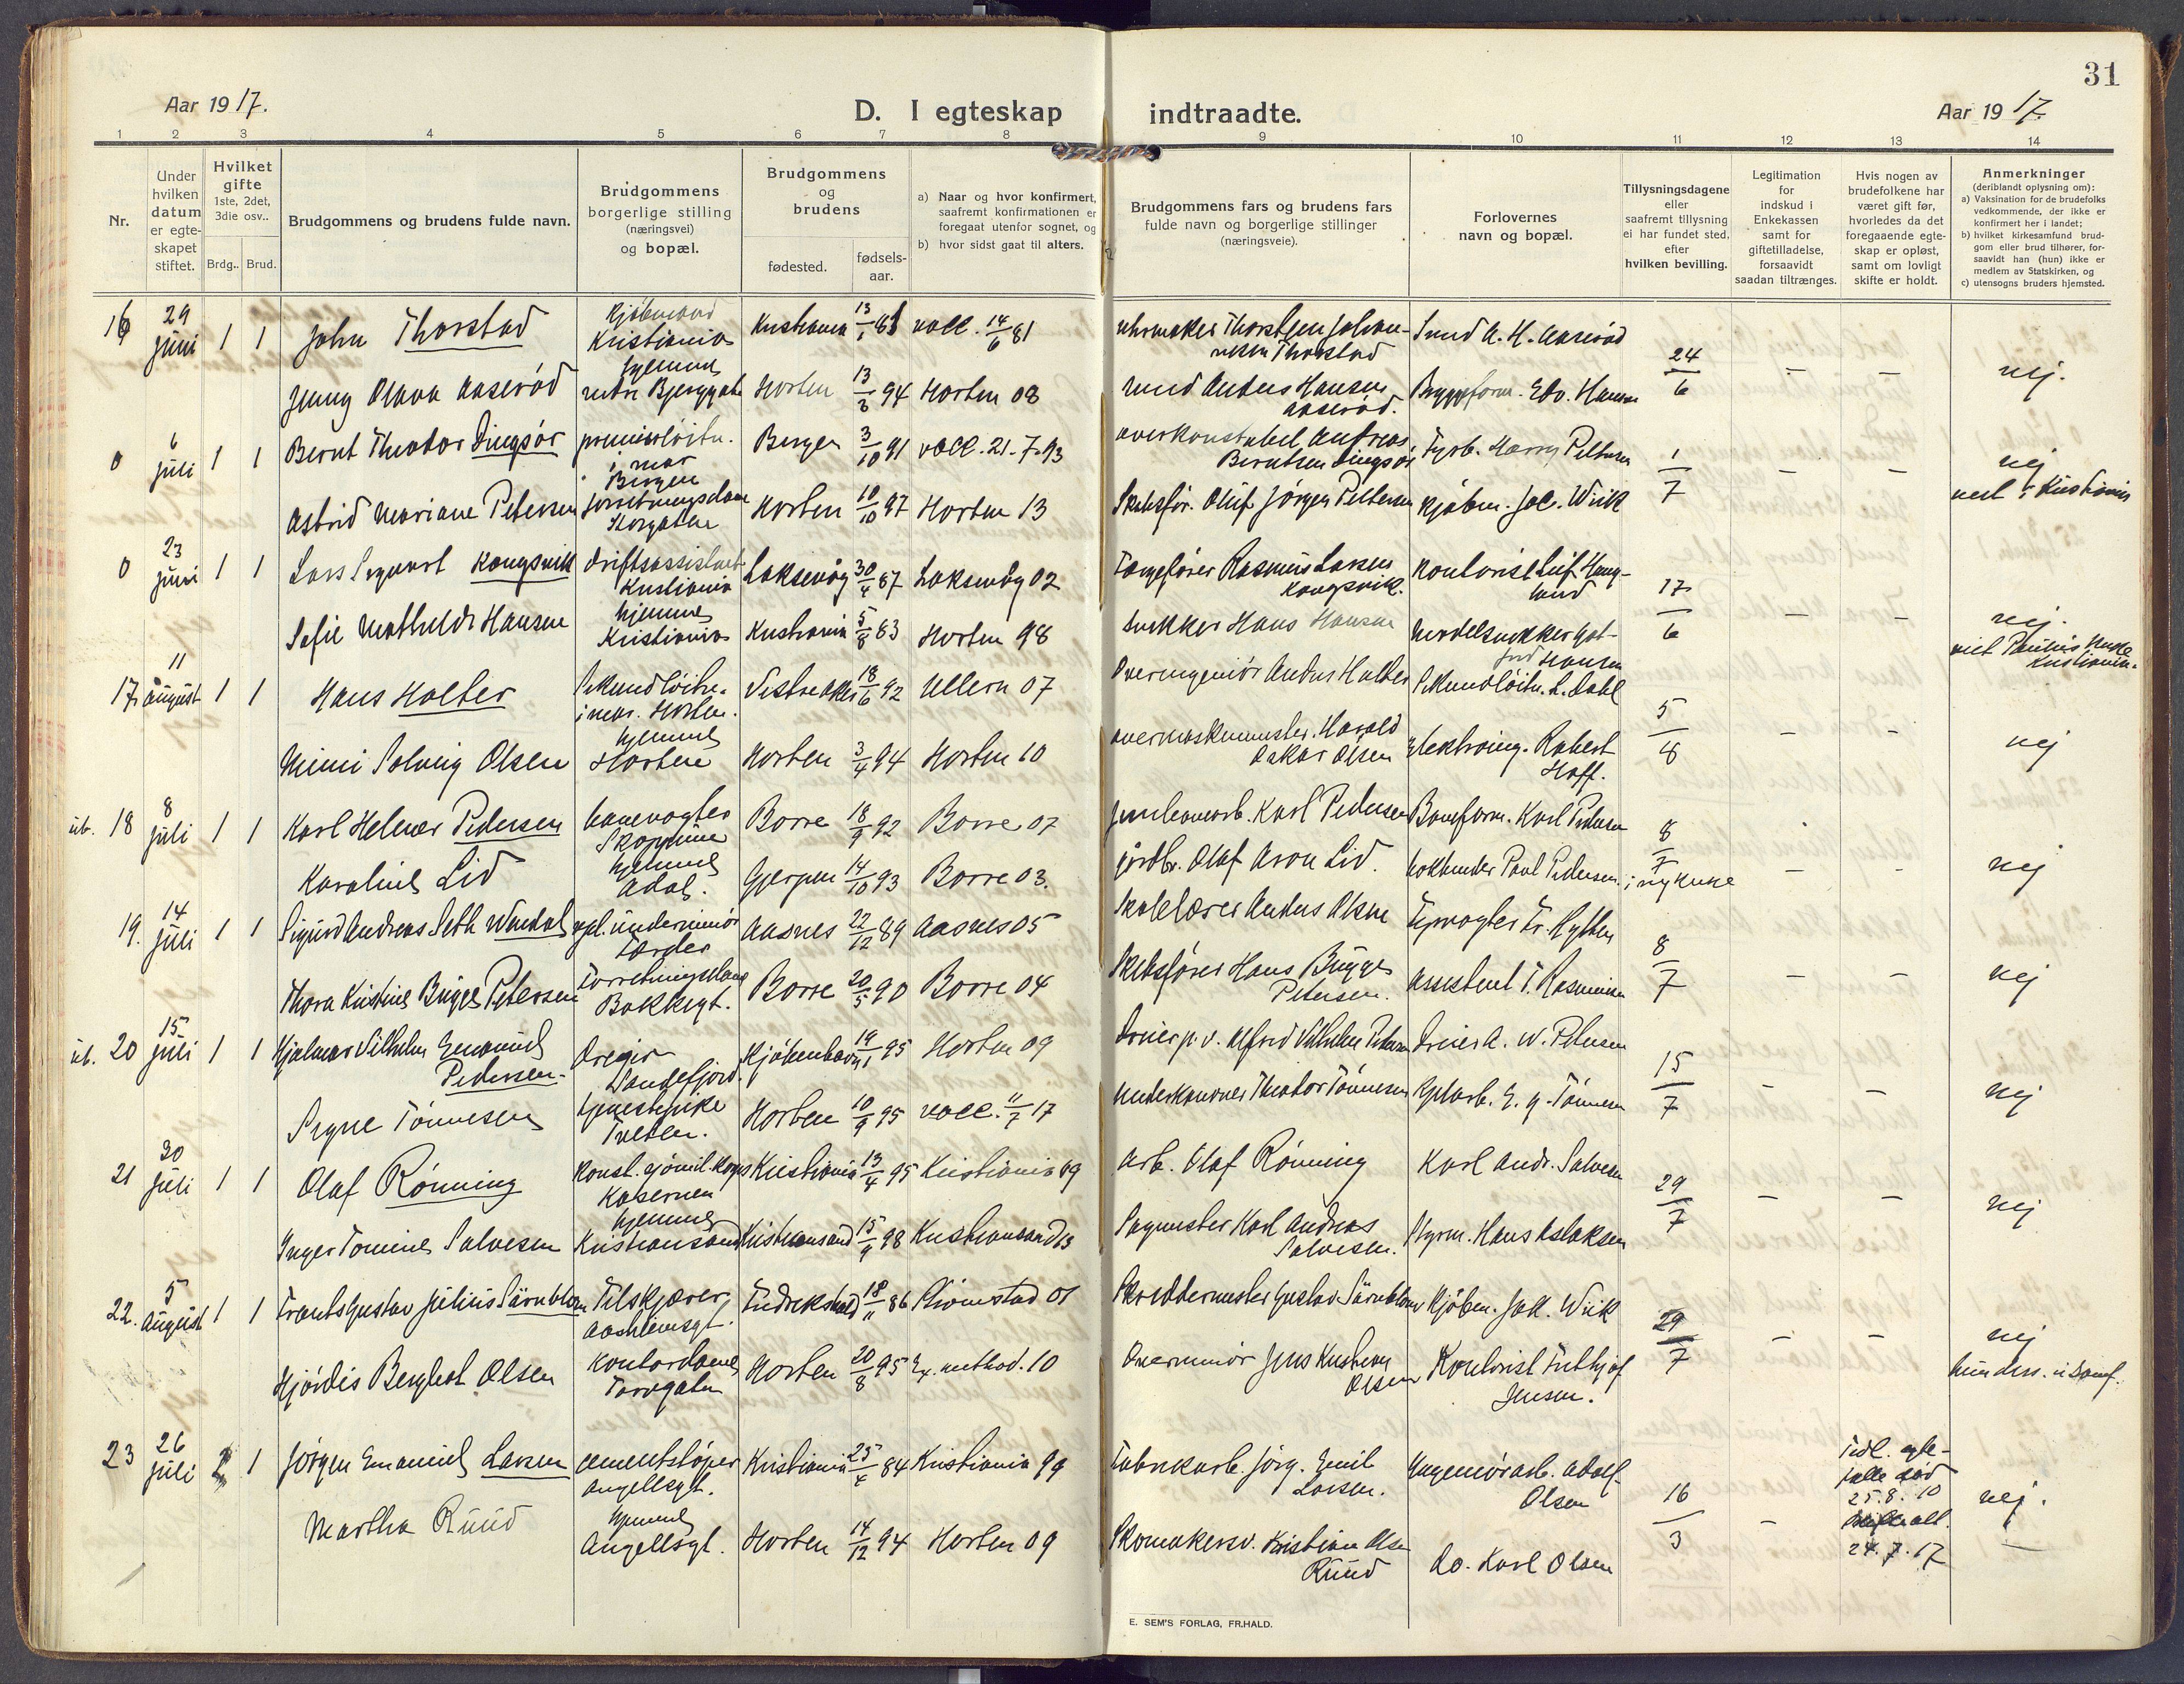 31
Aar 1917.
D. I egteskap indtraadte.
Aar 1917.
1 2 3 4 5 6 7 8 9 10 11 12 13 14
Nr.
Under hvilken datum er egte-skapet stiftet.
Hvilket gifte 1ste, 2det, 3die osv..
Brdg.. Brud.
Brudgommens og brudens fulde navn.
Brudgommens borgerlige stilling (næringsvei) og bopæl.
Brudgommens og brudens
fødested.
fødsels-aar.
a) Naar og hvor konfirmert, saafremt konfirmationen er foregaat utenfor sognet, og
b) hvor sidst gaat til alters.
Brudgommens fars og brudens fars fulde navn og borgerlige stillinger (næringsveie).
Forlovernes navn og bopæl.
Tillysningsdagene eller saafremt tillysning ei har fundet sted, efter hvilken bevilling.
Legitimation for indskud i Enkekassen samt for giftetilladelse, forsaavidt saadan tiltrænges.
Hvis nogen av brudefolkene har været gift før, hvorledes da det foregaaende egte-skap er opløst, samt om lovligt skifte er holdt.
Anmerkninger (deriblandt oplysning om):
a) Vaksination for de brudefolks vedkommende, der ikke er konfirmert her i landet;
b) hvilket kirkesamfund brud-gom eller brud tilhører, for-saavidt han (hun) ikke er medlem av Statskirken, og
c) utensogns bruders hjemsted.
16 29 juni 1 1 John Thorstad Kjøbmand Kristiania Kristiania vacc. 14/6 81 Thorstad Smed A. H. Aaserød
Jenny Olava Aaserød hjemme Horten 13/3 94 Horten 08 smed Anders Hansen Aaserød. Edv. Hansen 24/6 – – nej.
0 6 juli 1 1 Bernt Theodor Dingsør premierløitn. i mar Bergen Bergen 3/10 91 vacc. 21-7-93 overkonstabel Andreas Berntsen Dingsør Harry Pettersen
Astrid Mariane Petersen forretningsdame Storgaten Horten 10/10 97 Horten 13 Oluf Jörgen Pettersen kjøbm. Jac. Wiik 1/7 – – nej viet i Kristiania
0 23 juni 1 1 Lars Sigvart Kongsvik driftsassistent Kristiania Laksevåg 30/4 87 Laksevåg 02 Rasmus Larsen Kongsvik. kontorist Leif Haug-lund
Sofie Mathilde Hansen hjemme Kristiania Kristiania 5/8 83 Horten 98 snekker Hans Hansen modelsnekker Got-fred Hansen 17/6 – – nej. viet Paulus kirke Kristiania.
17 11 august 1 1 Hans Holter Sekundløitn. i mar. Horten. Vestre Aker 18/6 92 Ullern 07 Overingeniør Anders Holter Sekundløitn. L. Dahl
Mimi Solveig Olsen hjemme Horten Horten 3/4 94 Horten 10 overmaskinmester. Harald Oskar Olsen Elektroing. Robert Hoff. 5/8 – – nej
ub. 18 8 juli 1 1 Karl Helmer Pedersen banevogter Skoppum Borre 18/9 92 Borre 07 jernbanearb. Karl Pedersen Baneform. Karl Pedersen
Karoline Lid hjemme Adal. Gjerpen 14/10 93 Borre 03. jordbr. Olaf Aron Lid. bokbinder Paul Pedersen. 8/7 – - nej
19. 14 juli 1 1 Sigurd Andreas Seth underminør Færder Aasnes 22/12 89 Aasnes 05 Skolelærer Anders Olsen Fyrvogter Fr. Hytten
Thora Kristine Brügge Petersen Forretningsdame Bakkegt. Borre 20/5 90 Borre 04 Skibsfører Hans Brügge Petersen. assistent T. Rasmussen 8/7 – – nej
ub. 20 15 juli 1 1 Hjalmar Vilhelm Emanuel Pedersen. Sandefjord. Kjøbenhavn 95 Horten 09 Alfred Vilhelm Pedersen A. W. Petersen
Signe Tönnesen tjenestepike Horten 10/9 95 vacc. 11/7 17 underkanoner Theodor Tönnesen Tönnesen 15/7 – – nej
21 20 juli 1 1 Olaf Rönning konst. sjömil. korps Kasernen Kristiania 13/4 95 Kristiania 09 arb. Olaf Rönning Karl Andr. Salvesen
Inger Tomine Salvesen hjemme Kristiansand Kristiansand 15/9 98 Kristiansand 13 Sagmester Karl Andreas Salvesen. Styrm. Hans Aslaksen 29/7 – – nej
22. 5 august 1 1 Frants Gustav Julius Särnblom Tilskjærer Fredrikshald 18/11 86 Strömstad 01 Skreddermester Gustav Särnblom Kjöbm. Jak. Wiik
Hjördis Bergliot Olsen kontordame Torvgaten Horten 20/8 95 Ex. method. 10 Overminör Jens Kristian Olsen Kontorist Fritjof Jensen. 29/7 – – nej
23 26 juli 2 1 Jörgen Emanuel Larsen cementstøper Angellsgt. Kristiania 25/4 84 Kristiania 99 Fabrikarb. Jörg. Emil Larsen. Ingeniørarb. Adolf Olsen
Martha Ruud hjemme Angellsgt. Horten 14/12 94 Horten 09 Skomakersv. Kristian Olsen Ruud do. Karl Olsen 16/3 – 25.8.10 24.7.17 nej.
E. SEM'S FORLAG, FR.HALD.